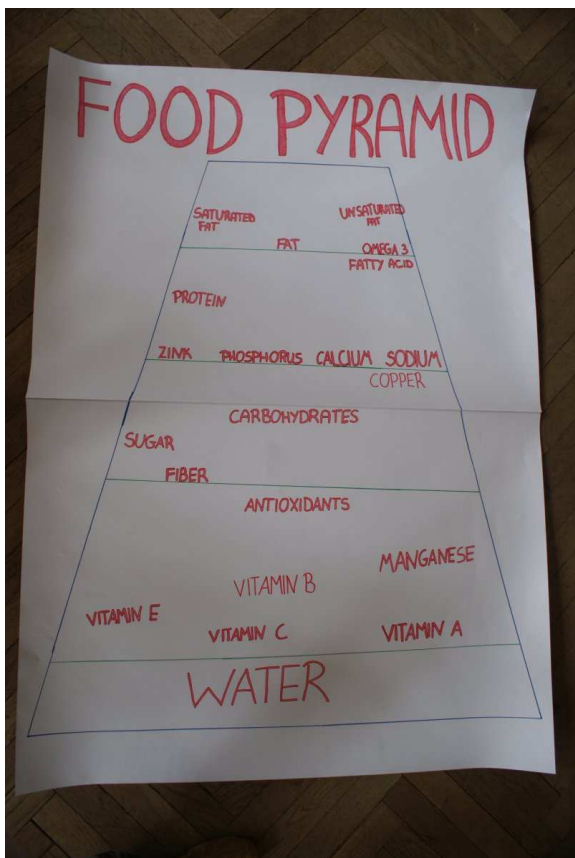 FOOD PYRAMID
SATURATED FAT
UNSATURATED FAT
FAT
OMEGA 3 FATTY ACID
PROTEIN
ZINK PHOSPHORUS CALCIUM SODIUM
COPPER
CARBOHYDRATES
SUGAR
FIBER
ANTIOXIDANTS
MANGANESE
VITAMIN B
VITAMIN E
VITAMIN C VITAMIN A
WATER